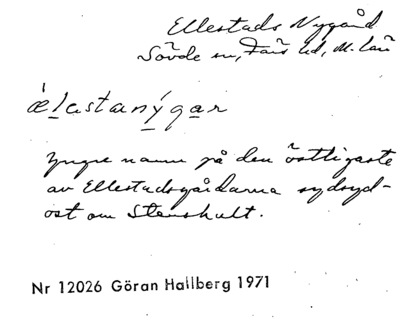 Ellestads Nygård
Sövde sn, Färs hd, M. län
ælastanýgar
Yngre namn på den östligaste
av Ellestadsgårdarna sydsyd-
ost om Stenshult.
Nr 12026 Göran Hallberg 1971